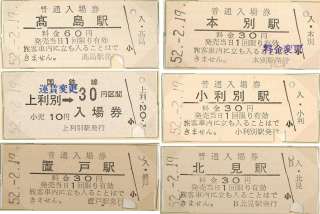 普通入場券
髙島駅
料金60円
発売当日1回限り有効
旅客車内に立ち入ることはできません
髙島駅発行
52.-2.19
普通入場券
本別駅
料金30円
発売当日1回限り有効
旅客車内に立ち入ることはできません
料金変更
52.-2.19
運賃変更
上利別→30円区間
小児10円 入場券
上利別駅発行
52.-2.19
普通入場券
小利別駅
料金30円
発売当日1回限り有効
旅客車内に立ち入ることはできません
小利別駅発行
52.-2.19
普通入場券
置戸駅
料金30円
発売当日1回限り有効
旅客車内に立ち入ることはできません
置戸駅発行
52.-2.19
普通入場券
北見駅
料金30円
発売当日1回限り有効
旅客車内に立ち入ることはできません
北見駅発行
52.-2.19